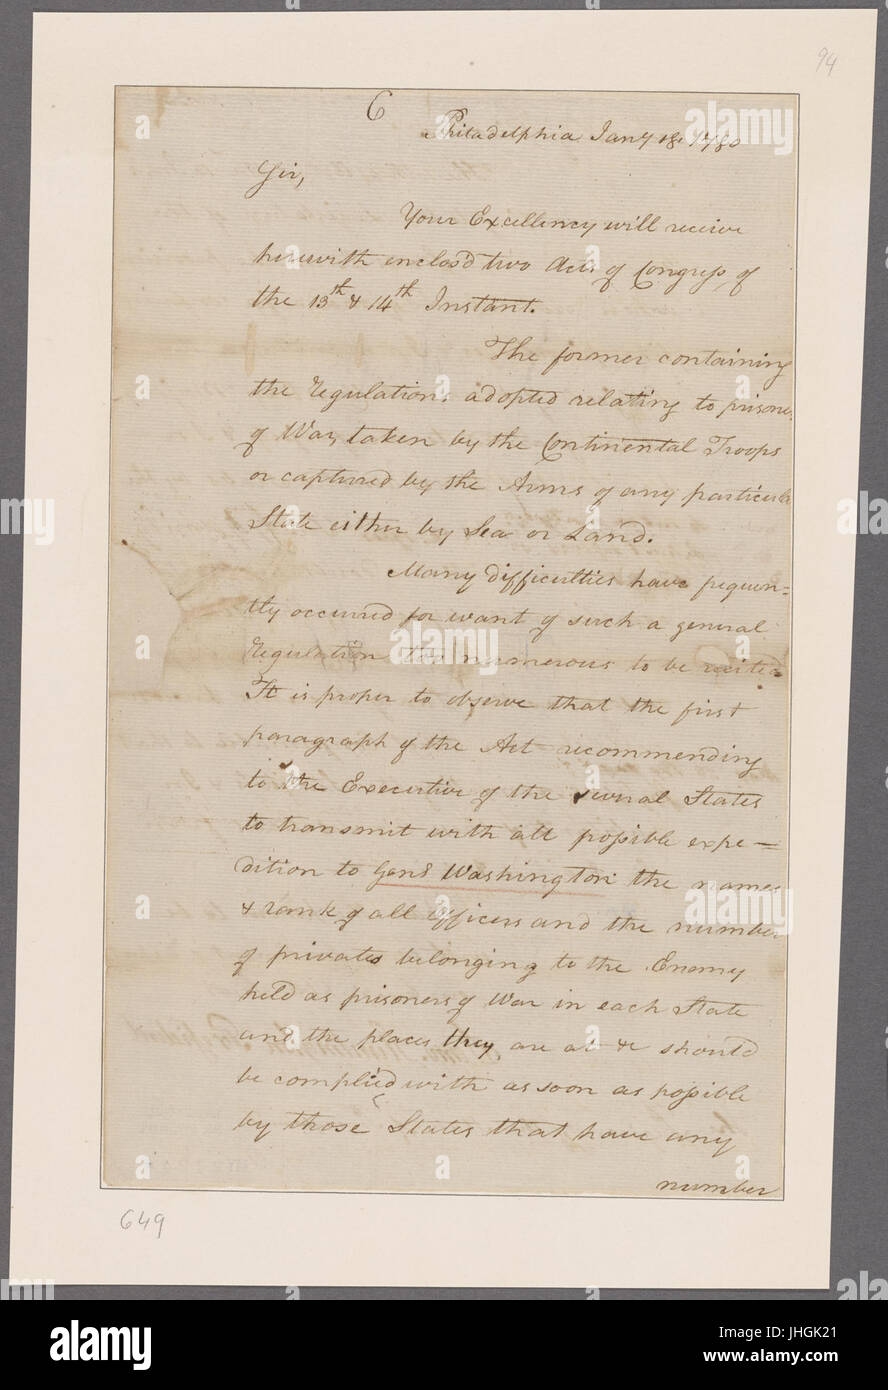 94
6
Philadelphia Jany 18 1780
Sir,
Your Excellency will receive
herewith enclos'd two Acts of Congress, of
the 13th & 14th Instant.
The former containing
the Regulations adopted relating to prisoners
of War, taken by the Continental Troops
or captured by the Arms of any particular
State either by Sea or Land.
Many difficulties have frequen=
tly occurred for want of such a general
Regulation too numerous to be recited
It is proper to observe that the first
paragraph of the Act recommending
to the Executive of the several States
to transmit with all possible expe=
dition to Genl Washington the names
& rank of all officers and the number
of privates belonging to the Enemy
held as prisoners of War in each State
and the places they are at &c should
be complied with as soon as possible
by those States that have any
number
649
alamy
Image ID: JHGK21
www.alamy.com